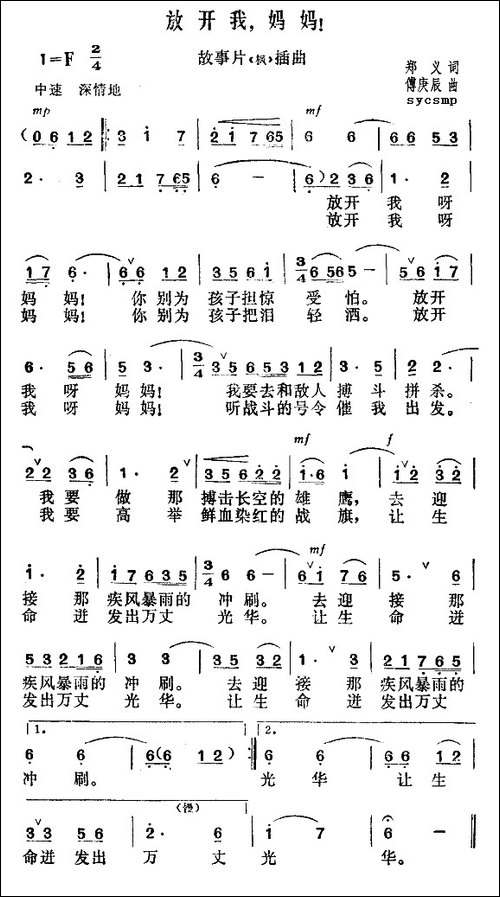 放开我,妈妈!
1=F 2/4 故事片《枫》插曲
郑 义 词
中速 深情地 傅庚辰 曲
sycsmp
mp mf
(0 6 1 2 3 1 7 2 1 7 65 6 6 6 6 5 3
2· 3 2 1 7 65 6 – 6) 2 3 6 1· 2
放开 我 呀
放开 我 呀
1 7 6· 6 6 1 2 3 5 6 1 3/4 6 5 6 5 5 – 5 6 1 7
妈 妈! 你 别为 孩子担惊 受 怕。 放开
妈 妈! 你 别为 孩子把泪 轻 洒。 放开
6· 5 6 5 3· 3/4 3 5 6 5 3 1 2 3· 5 2 2·
我 呀 妈妈! 我要去和敌人 搏 斗 拼 杀。
我 呀 妈妈! 听战斗的号令 催 我 出 发。
mf f
2 2 3 6 1· 2 3 5 6 2 2 1·6 1 1 2 3 2
我 要 做 那 搏击长空的 雄 鹰, 去 迎
我 要 高 举 鲜血染红的 战 旗, 让 生
mf
1· 2 1 7 6 3 5 3/4 6 6 – 6 1 7 6 5· 6
接 那 疾风暴雨的 冲 刷。 去迎 接 那
命 迸 发出万丈 光 华。 让生 命 迸
5 3 2 1 6 3 3 3 5 3 2 1· 3 2 1 7 6 5
疾风暴雨的 冲 刷。 去 迎 接 那 疾风暴雨的
发出万丈 光 华。 让 生 命 迸 发出万丈
1. 2.
6 6 6 (6 1 2) 6 6 6 6 1 2
冲 刷。 光 华 让 生
(慢)
3 3 5 6 2· 6 1 7 6 –
命迸 发出 万 丈 光 华。